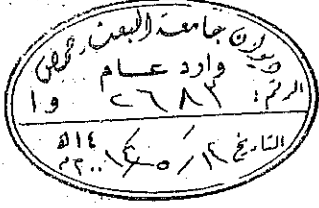 ديوان جامعة البعث - حمص
وارد عام
الرقم: ٢٦٨٣ و ١
التاريخ ١٤هـ
٢٠٠م